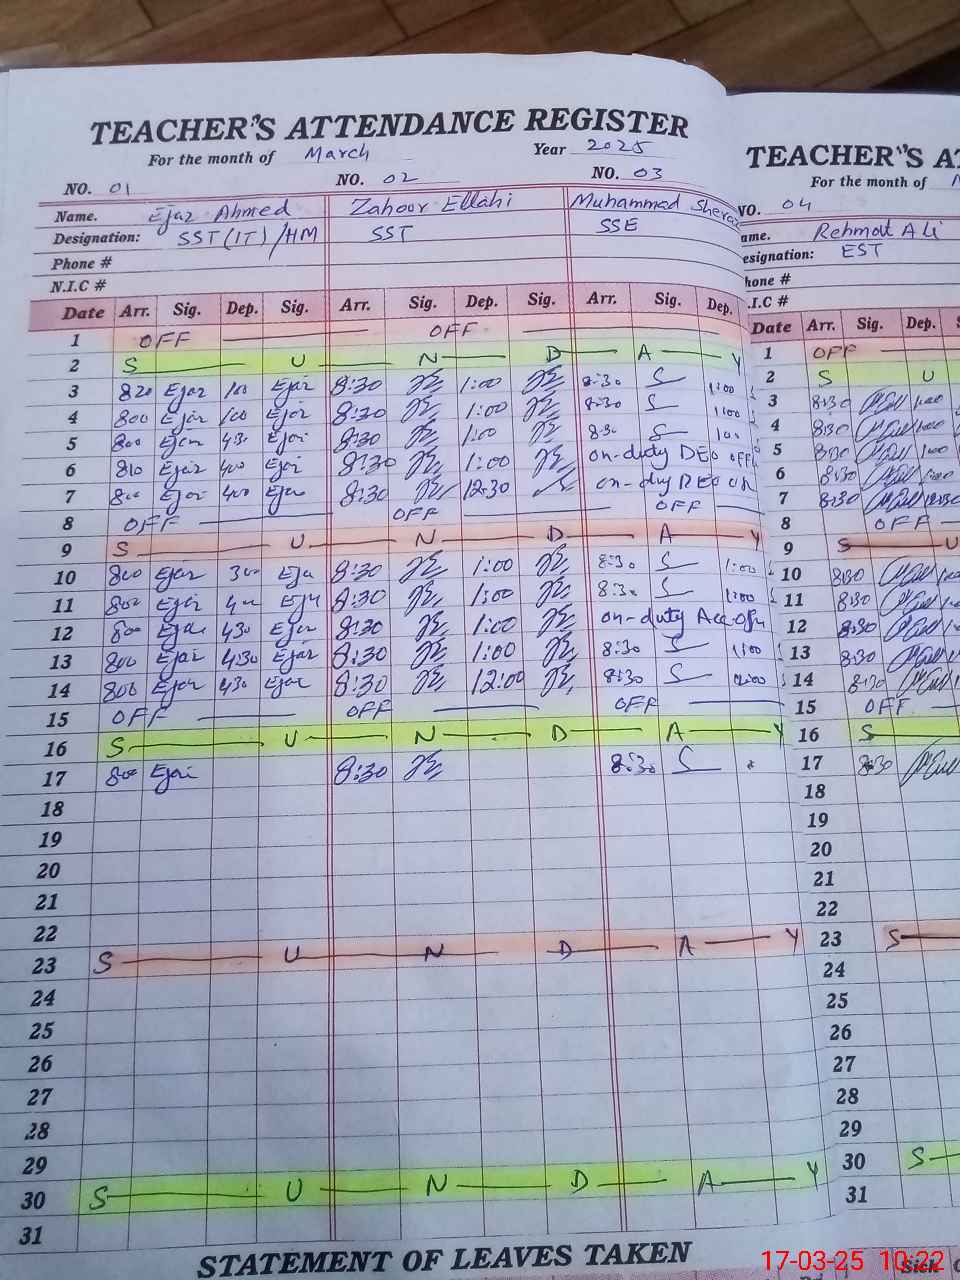 TEACHER'S ATTENDANCE REGISTER
For the month of March Year 2025
NO. 01 NO. 02 NO. 03
Name. Ejaz Ahmed Zahoor Ellahi Muhammad
Designation: SST (IT) /HM SST SSE
Phone #
N.I.C #
Date Arr. Sig. Dep. Sig. Arr. Sig. Dep. Sig. Arr. Sig. Dep.
1 OFF OFF
2 S U N D A Y
3 820 Ejaz 100 Ejaz 8:30 1:00 8:30 S 1:00
4 800 Ejaz 100 Ejaz 8:30 1:00 8:30 S 1:00
5 800 Ejaz 430 Ejaz 8:30 1:00 8:30 S 100
6 810 Ejaz 400 Ejaz 8:30 1:00 on-duty DEO OFF
7 800 Ejaz 400 Ejaz 8:30 12:30 on-duty DEO
8 OFF OFF OFF
9 S U N D A Y
10 800 Ejaz 300 Eja 8:30 1:00 8:30 S 1:00
11 800 Ejaz 400 Eja 8:30 1:00 8:30 S 1:00
12 800 Ejaz 430 Ejaz 8:30 1:00 on-duty
13 800 Ejaz 4:30 Ejaz 8:30 1:00 8:30 S 1:00
14 800 Ejaz 430 Ejaz 8:30 12:00 8:30 S 12:00
15 OFF OFF OFF
16 S U N D A Y
17 800 Ejaz 8:30 8:30 S
18
19
20
21
22
23 S U N D A Y
24
25
26
27
28
29
30 S U N D A Y
31
STATEMENT OF LEAVES TAKEN
TEACHER'S AT
For the month of M
NO. 04
ame. Rehmat Ali
esignation: EST
hone #
.I.C #
Date Arr. Sig. Dep.
1 OFF
2 S U
3 8:30 1:00
4 8:30 1:00
5 8:30 1:00
6 8:30 1:00
7 8:30 12:30
8 OFF
9 S U
10 8:30
11 8:30
12 8:30
13 8:30
14 8:30
15 OFF
16 S
17 8:30
18
19
20
21
22
23 S
24
25
26
27
28
29
30 S
31
Sick
17-03-25 10:22